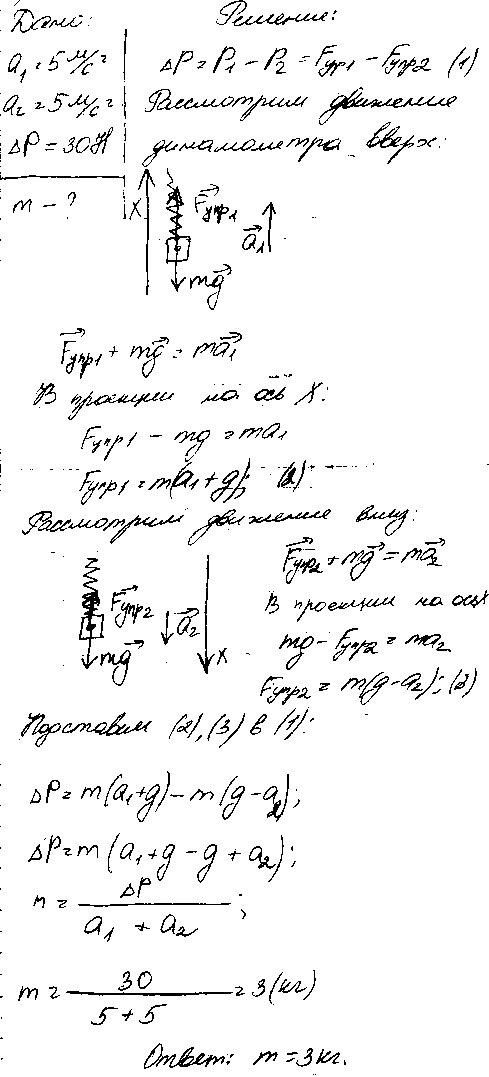 Дано:
a₁ = 5 м/с²
a₂ = 5 м/с²
ΔP = 30Н
m - ?
Решение:
ΔP = P₁ - P₂ = Fупр1 - Fупр2 (1)
Рассмотрим движение
динамометра вверх:
X F⃗упр1 a⃗₁
mg⃗
F⃗упр1 + mg⃗ = ma⃗₁
В проекции на ось X:
Fупр1 - mg = ma₁
Fупр1 = m(a₁ + g); (2)
Рассмотрим движение вниз:
F⃗упр2 a⃗₂
mg⃗ X
F⃗упр2 + mg⃗ = ma⃗₂
В проекции на осьX
mg - Fупр2 = ma₂
Fупр2 = m(g - a₂); (3)
Подставим (2), (3) в (1):
ΔP = m(a₁+g) - m(g - a₂);
ΔP = m(a₁ + g - g + a₂);
m = ΔP / (a₁ + a₂);
m = 30 / (5 + 5) = 3 (кг)
Ответ: m = 3кг.